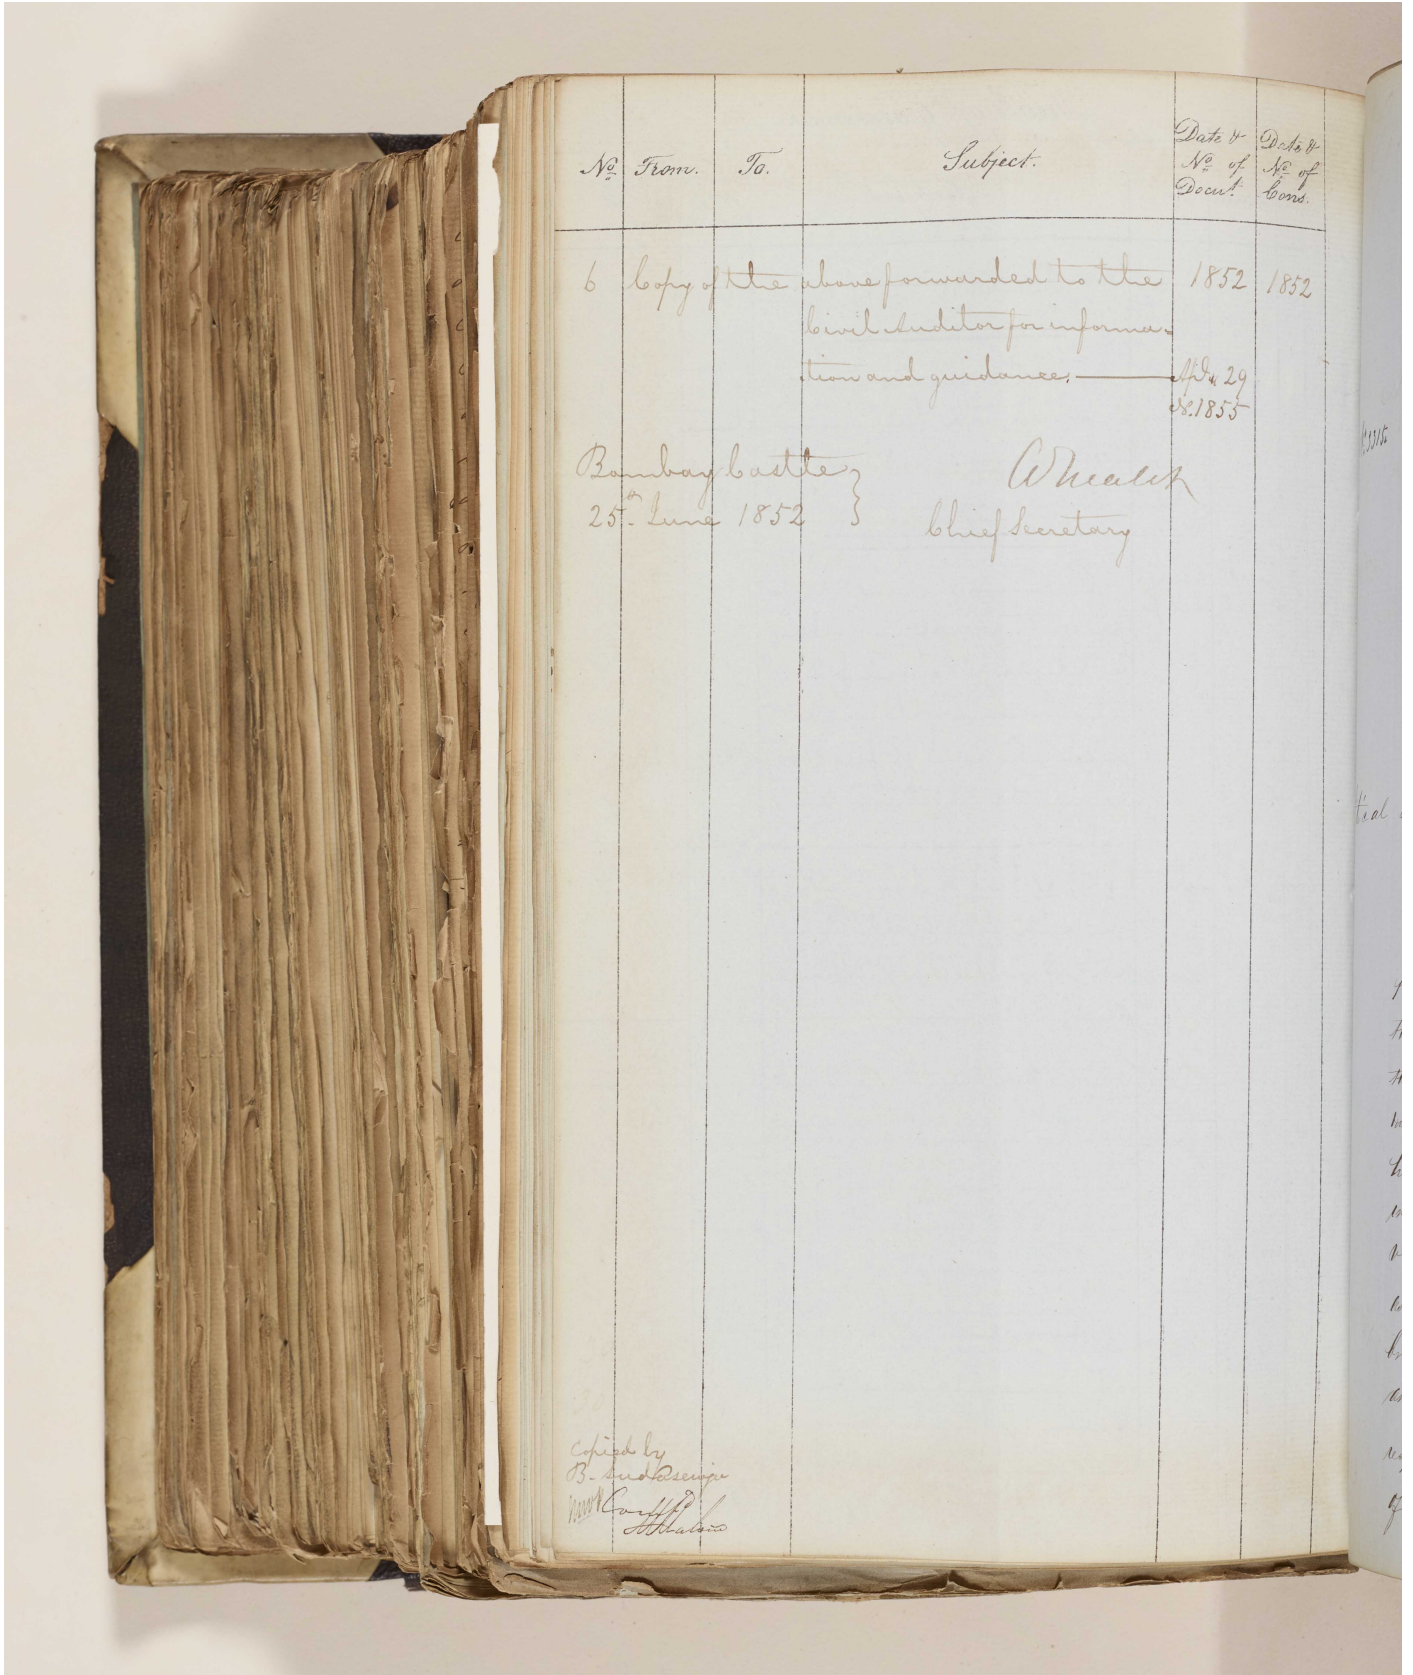 No. From. To. Subject. Date & No. of Docut. Date & No. of Cons.
6 Copy of the above forwarded to the 1852 1852
Civil Auditor for informa=
tion and guidance. Apl. 29
No. 1855
Bombay Castle
25th June 1852
Chief Secretary
Copied by
B.
tial